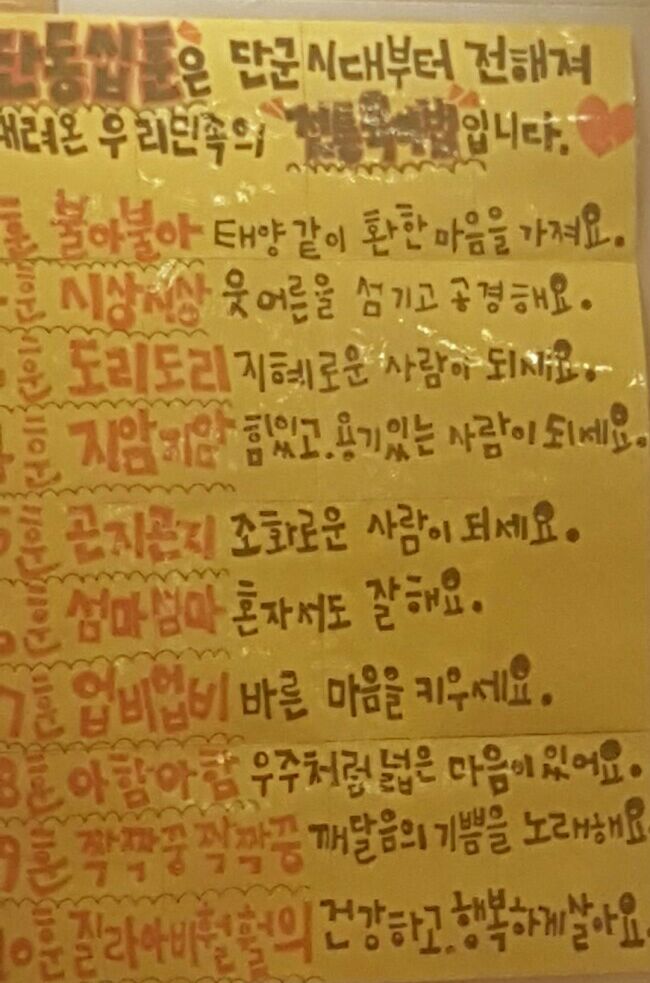 단동십훈은 단군시대부터 전해져
내려온 우리민족의 전통육아법입니다.
훈 불아불아 태양같이 환한 마음을 가져요.
시상시상 웃어른을 섬기고 공경해요.
도리도리 지혜로운 사람이 되세요.
지암지암 힘있고, 용기있는 사람이 되세요.
곤지곤지 조화로운 사람이 되세요.
섬마섬마 혼자서도 잘해요.
7 업비업비 바른 마음을 키우세요.
8훈 아함아함 우주처럼 넓은 마음이 있어요.
9훈 짝짝궁짝짝궁 깨달음의 기쁨을 노래해요
10훈 질라아비훨훨의 건강하고, 행복하게살아요